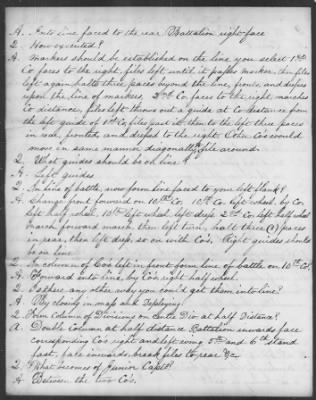 A. Into line faced to the rear Battalion right face
2. How executed?
A. Markers should be established on the line you select 1st
Co faces to the right, files left until it passes marker, then files
left again halts three paces beyond the line, fronts, and dresses
upon the line of markers 2nd Co. faces to the right, marches
Co distance, files left throws out a guide at Co distance from
the left guide of 1st Co, files past it, then to the left three paces
in rear, fronts, and dresses to the right. Other Cos would
move in same manner diagonally file around.
2. What guides should be on line?
A. Left guides
2. In line of battle, now form line faced to your left flank?
A. Change front forward on 10th Co. 10th Co. left wheel. by Co.
left half wheel. 10th left wheel. left dress, 2nd Co. left half wheel
march forward march, then left turn, halt three (3) paces
in rear, then left dress, so on with Co's. Right guides should
be on line
2. In column of Cos left in front form line of battle on 10th Co?
A. Forward into line, by Co's right half wheel.
2. Is there any other way you could get them into line?
A. By closing in mass and Deploying
2. Form Column of Divisions on Centre Div at half Distance?
A. Double Column at half distance Battalion inwards face
corresponding Co's right and left wing 5th and 6th stand
fast, face inwards, break files to rear &c.
2. What becomes of Junior Capt?
A. Between the two Co's.